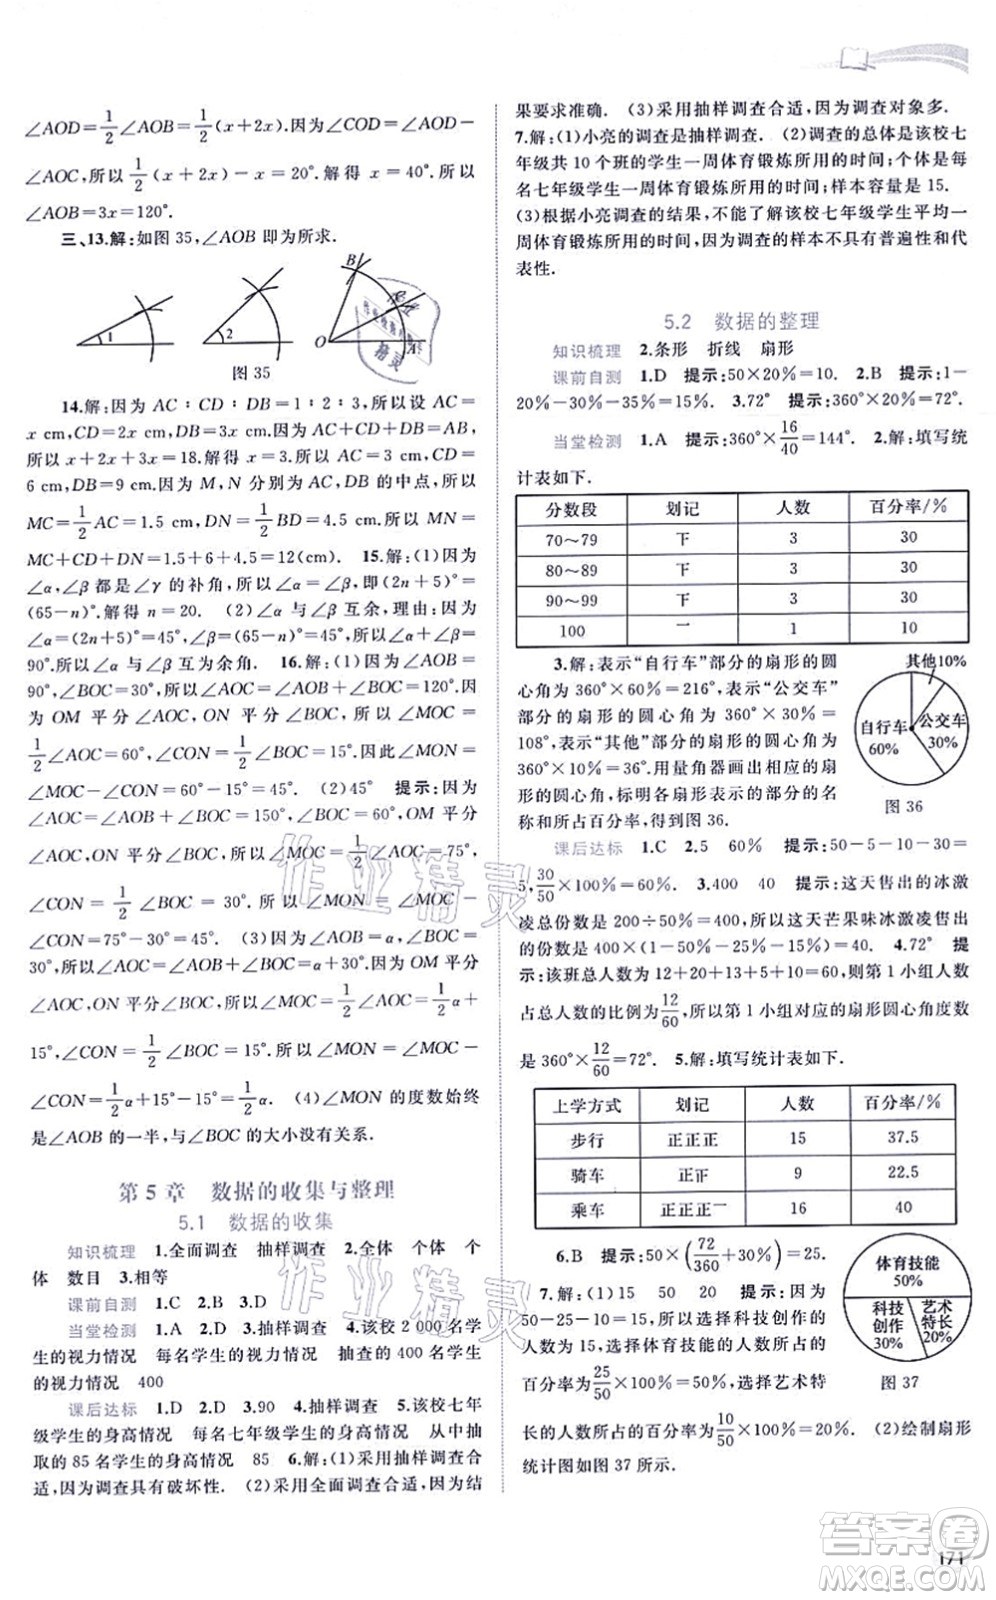 ∠AOD=1/2∠AOB=1/2(x+2x).因为∠COD=∠AOD-
∠AOC,所以1/2(x+2x)-x=20°.解得x=40°.所以
∠AOB=3x=120°.
三、13.解:如图 35,∠AOB 即为所求.
1
2
B
O
A
图 35
14.解:因为 AC∶CD∶DB=1∶2∶3,所以设 AC=
x cm,CD=2x cm,DB=3x cm.因为 AC+CD+DB=AB,
所以 x+2x+3x=18.解得 x=3.所以 AC=3 cm,CD=
6 cm,DB=9 cm.因为 M,N 分别为 AC,DB 的中点,所以
MC=1/2AC=1.5 cm,DN=1/2BD=4.5 cm.所以 MN=
MC+CD+DN=1.5+6+4.5=12(cm). 15.解:(1)因为
∠α,∠β都是∠γ的补角,所以∠α=∠β,即(2n+5)°=
(65-n)°.解得 n=20. (2)∠α与∠β互余,理由:因为
∠α=(2n+5)°=45°,∠β=(65-n)°=45°,所以∠α+∠β=
90°.所以∠α与∠β互为余角. 16.解:(1)因为∠AOB=
90°,∠BOC=30°,所以∠AOC=∠AOB+∠BOC=120°.因
为 OM 平分∠AOC,ON 平分∠BOC,所以∠MOC=
1/2∠AOC=60°,∠CON=1/2∠BOC=15°.因此∠MON=
∠MOC-∠CON=60°-15°=45°. (2)45° 提示:因为
∠AOC=∠AOB+∠BOC=150°,∠BOC=60°,OM 平分
∠AOC,ON 平分∠BOC,所以∠MOC=1/2∠AOC=75°,
∠CON=1/2∠BOC=30°.所以∠MON=∠MOC-
∠CON=75°-30°=45°. (3)因为∠AOB=α,∠BOC=
30°,所以∠AOC=∠AOB+∠BOC=α+30°.因为 OM 平分
∠AOC,ON 平分∠BOC,所以∠MOC=1/2∠AOC=1/2α+
15°,∠CON=1/2∠BOC=15°.所以∠MON=∠MOC-
∠CON=1/2α+15°-15°=1/2α. (4)∠MON 的度数始终
是∠AOB 的一半,与∠BOC 的大小没有关系.
第 5 章 数据的收集与整理
5.1 数据的收集
知识梳理 1.全面调查 抽样调查 2.全体 个体 个
体 数目 3.相等
课前自测 1.C 2.B 3.D
当堂检测 1.A 2.D 3.抽样调查 4.该校 2 000 名学
生的视力情况 每名学生的视力情况 抽查的 400 名学生
的视力情况 400
课后达标 1.D 2.D 3.90 4.抽样调查 5.该校七年
级学生的身高情况 每名七年级学生的身高情况 从中抽
取的 85 名学生的身高情况 85 6.解:(1)采用抽样调查合
适,因为调查具有破坏性. (2)采用全面调查合适,因为结
果要求准确. (3)采用抽样调查合适,因为调查对象多.
7.解:(1)小亮的调查是抽样调查. (2)调查的总体是该校七
年级共 10 个班的学生一周体育锻炼所用的时间;个体是每
名七年级学生一周体育锻炼所用的时间;样本容量是 15.
(3)根据小亮调查的结果,不能了解该校七年级学生平均一
周体育锻炼所用的时间,因为调查的样本不具有普遍性和代
表性.
5.2 数据的整理
知识梳理 2.条形 折线 扇形
课前自测 1.D 提示:50×20%=10. 2.B 提示:1-
20%-30%-35%=15%. 3.72° 提示:360°×20%=72°.
当堂检测 1.A 提示:360°×16/40=144°. 2.解:填写统
计表如下.
分数段 划记 人数 百分率/%
70～79 下 3 30
80～89 下 3 30
90～99 下 3 30
100 一 1 10
3.解:表示“自行车”部分的扇形的圆
心角为 360°×60%=216°,表示“公交车”
部分的扇形的圆心角为 360°×30%=
108°,表示“其他”部分的扇形的圆心角为
360°×10%=36°.用量角器画出相应的扇
形的圆心角,标明各扇形表示的部分的名
称和所占百分率,得到图 36.
其他10%
自行车
60%
公交车
30%
图 36
课后达标 1.C 2.5 60% 提示:50-5-10-30=
5,30/50×100%=60%. 3.400 40 提示:这天售出的冰激
凌总份数是 200÷50%=400,所以这天芒果味冰激凌售出
的份数是 400×(1-50%-25%-15%)=40. 4.72° 提
示:该班总人数为 12+20+13+5+10=60,第 1 小组人数
占总人数的比例为12/60,所以第 1 小组对应的扇形圆心角度数
是 360°×12/60=72°. 5.解:填写统计表如下.
上学方式 划记 人数 百分率/%
步行 正正正 15 37.5
骑车 正正 9 22.5
乘车 正正正一 16 40
6.B 提示:50×(72/360+30%)=25.
7.解:(1)15 50 20 提示:因为
50-25-10=15,所以选择科技创作的
人数为 15,选择体育技能的人数所占的
百分率为25/50×100%=50%,选择艺术特
长的人数所占的百分率为10/50×100%=20%. (2)绘制扇形
统计图如图 37 所示.
体育技能
50%
科技
创作
30%
艺术
特长
20%
图 37
作业精灵
作业精灵
答案圈
MXQE.COM
171